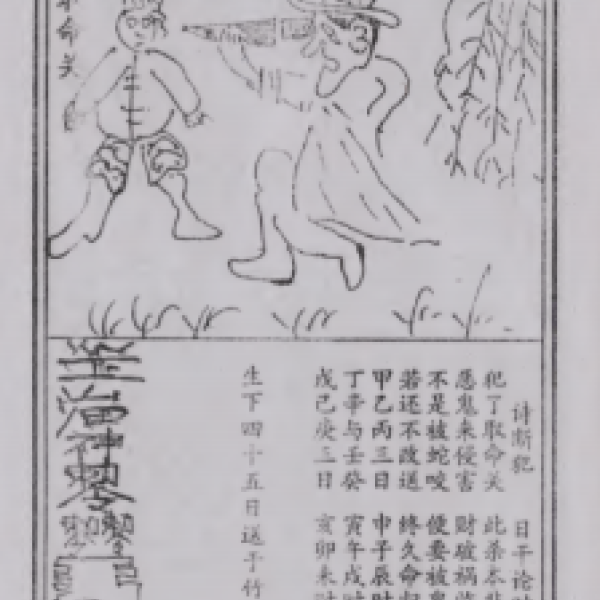 命关
诗断犯 日干论
犯了取命关 此杀本
恶鬼来侵害 财破祸临
不是被蛇咬 便要被鬼
若还不改送 终久命归
甲乙丙三日 申子辰时
丁辛与壬癸 寅午戌时
戊己庚三日 亥卯未时
生下四十五日送于竹